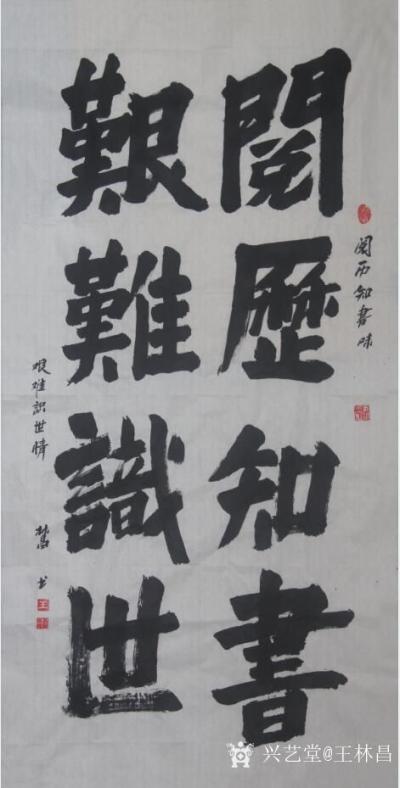 閱歷知書
艱難識世
阅历知書味
艰难识世情
林昌 书
兴艺堂@王林昌